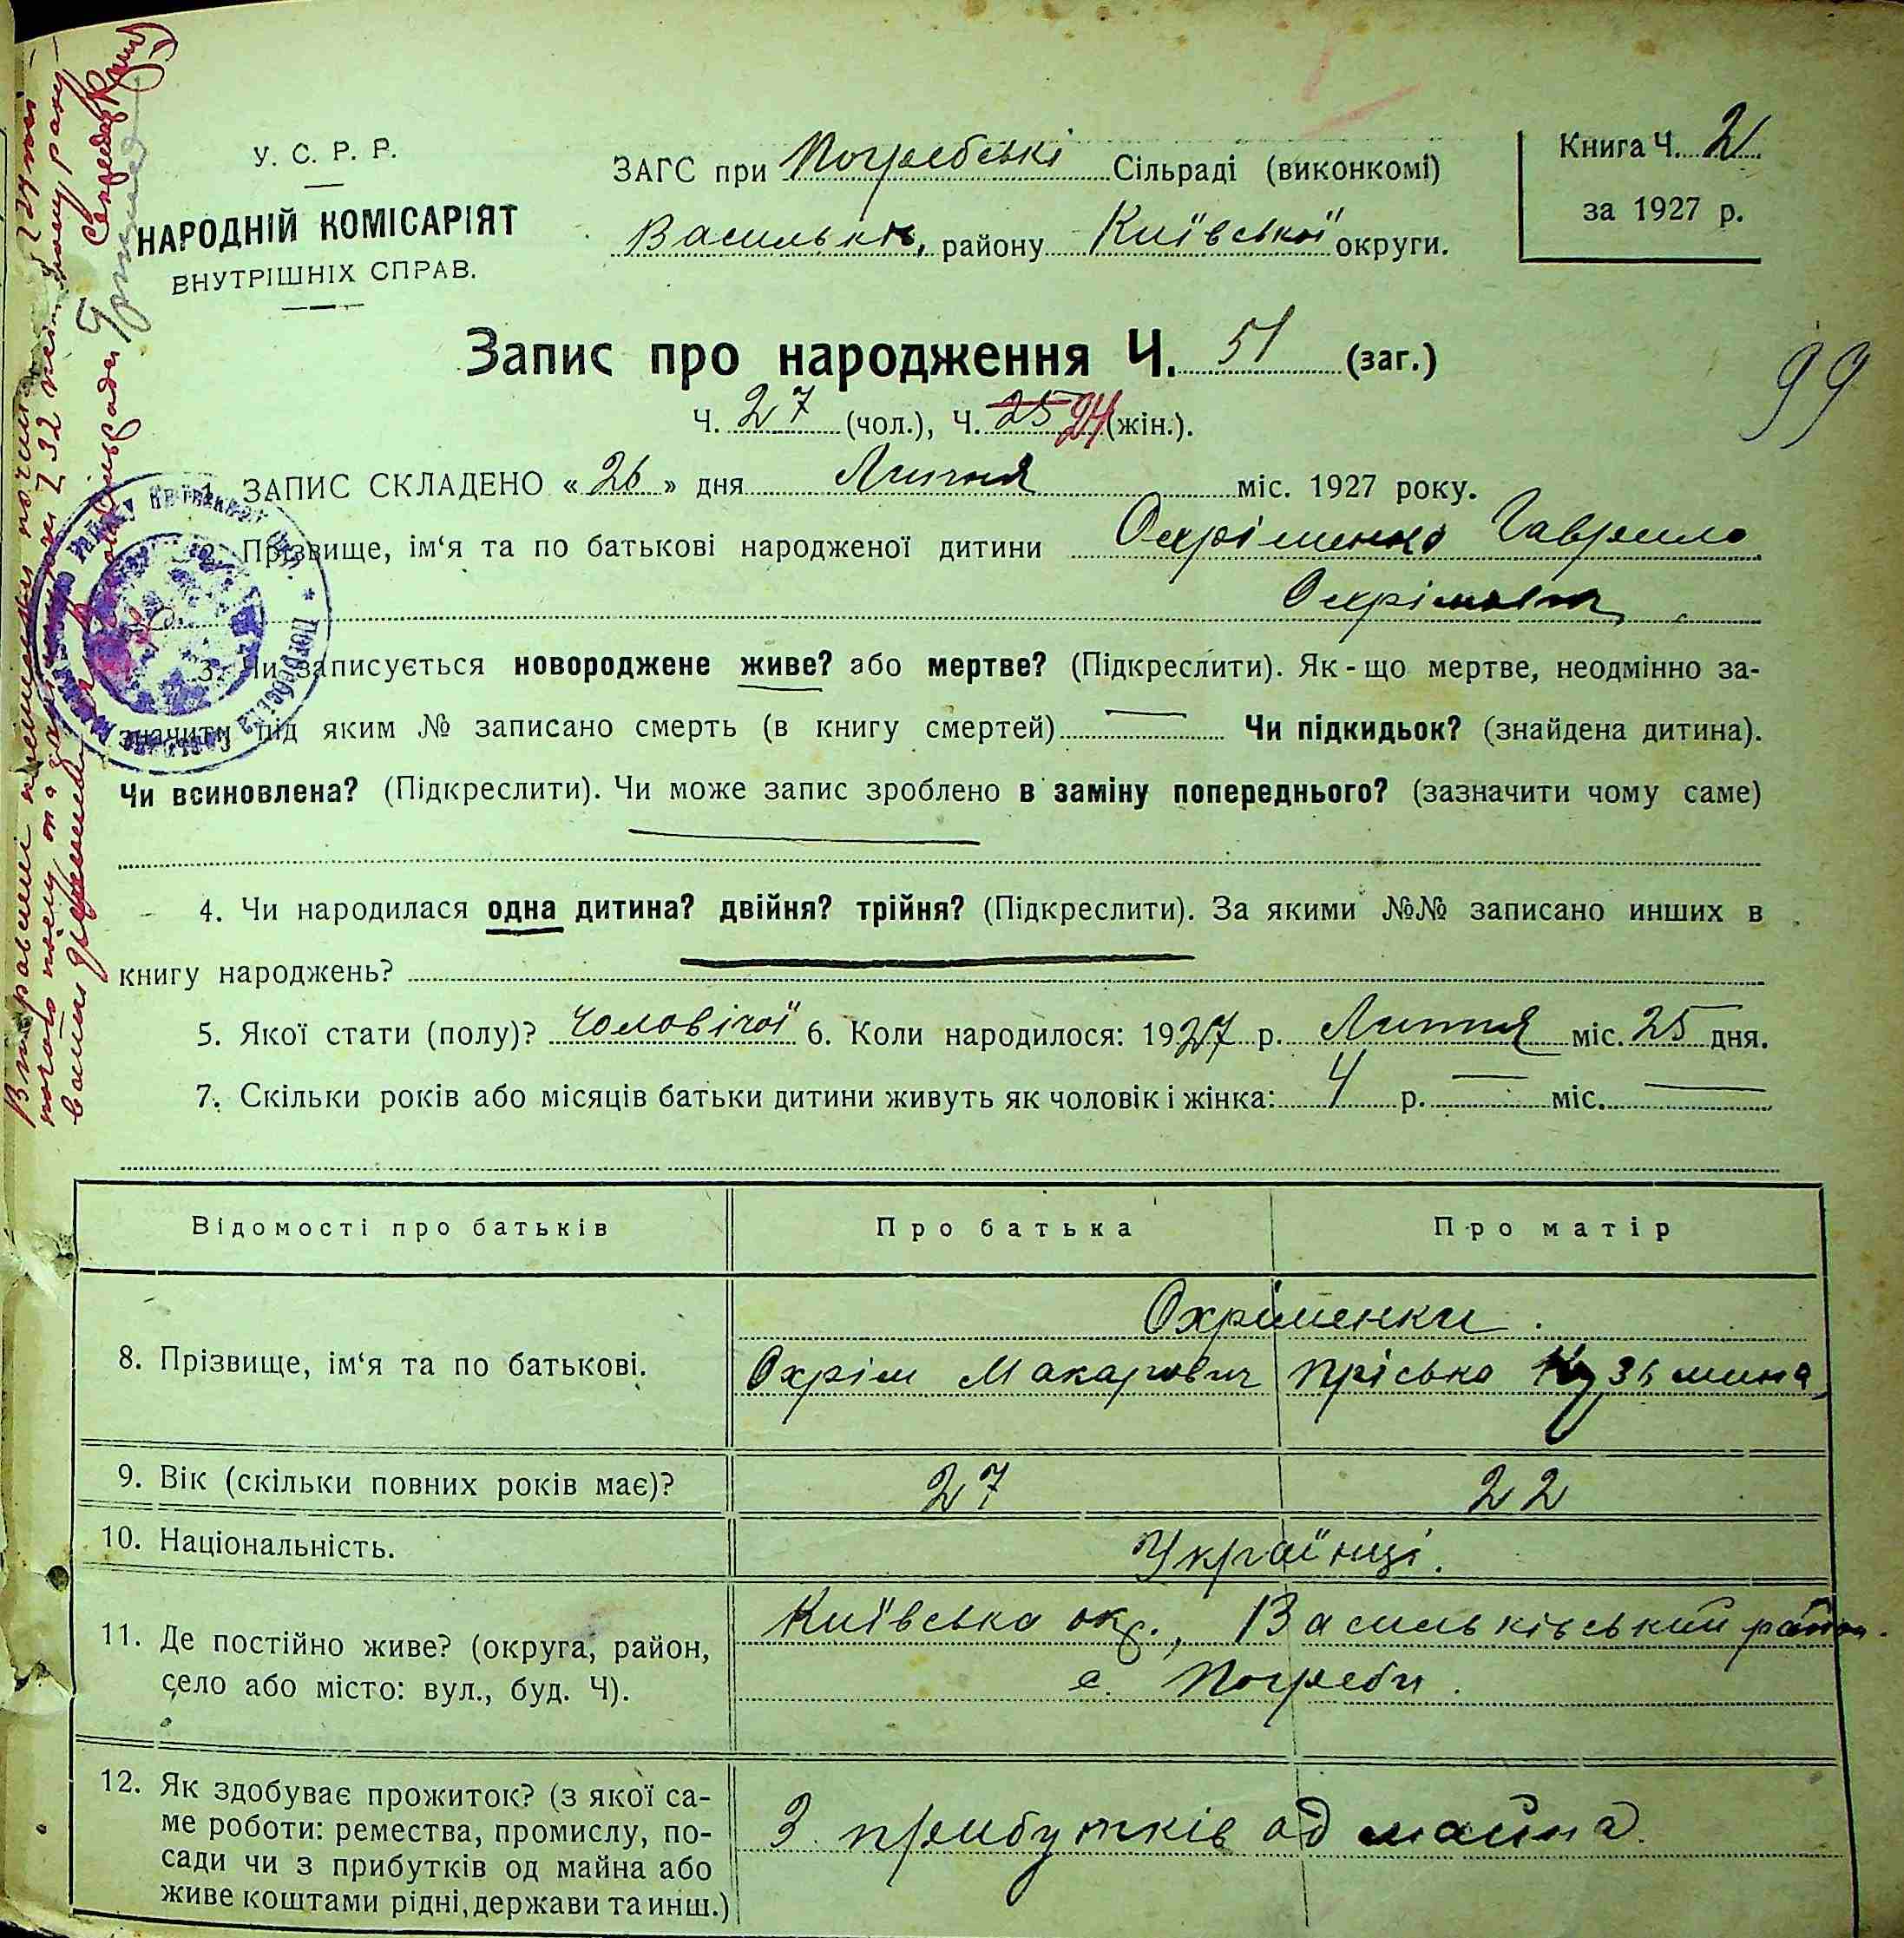 У. С. Р. Р.
НАРОДНІЙ КОМІСАРІЯТ
ВНУТРІШНІХ СПРАВ.
ЗАГС при Погребські Сільраді (виконкомі)
Васильків, району Київської округи.
Книга Ч. 2
за 1927 р.
99
Запис про народження Ч. 51 (заг.)
Ч. 27 (чол.), Ч. 25 24 (жін.).
1. ЗАПИС СКЛАДЕНО « 26 » дня Липня міс. 1927 року.
2. Прізвище, ім‘я та по батькові народженої дитини Охріменко Гаврило
Охрімович
3. Чи записується новороджене живе? або мертве? (Підкреслити). Як - що мертве, неодмінно за-
значити під яким № записано смерть (в книгу смертей) Чи підкидьок? (знайдена дитина).
Чи всиновлена? (Підкреслити). Чи може запис зроблено в заміну попереднього? (зазначити чому саме)
4. Чи народилася одна дитина? двійня? трійня? (Підкреслити). За якими №№ записано инших в
книгу народжень?
5. Якої стати (полу)? Чоловічої 6. Коли народилося: 1927 р. Липня міс. 25 дня.
7. Скільки років або місяців батьки дитини живуть як чоловік і жінка: 4 р. — міс. —
Відомості про батьків Про батька Про матір
Охріменки.
8. Прізвище, ім‘я та по батькові. Охрім Макарович Пріська Кузьмина
9. Вік (скільки повних років має)? 27 22
10. Національність. Українці.
11. Де постійно живе? (округа, район,
село або місто: вул., буд. Ч).
Київська окр., Васильківський район.
с. Погреби.
12. Як здобуває прожиток? (з якої са-
ме роботи: ремества, промислу, по-
сади чи з прибутків од майна або
живе коштами рідні, держави та инш.)
З прибутків од майна.